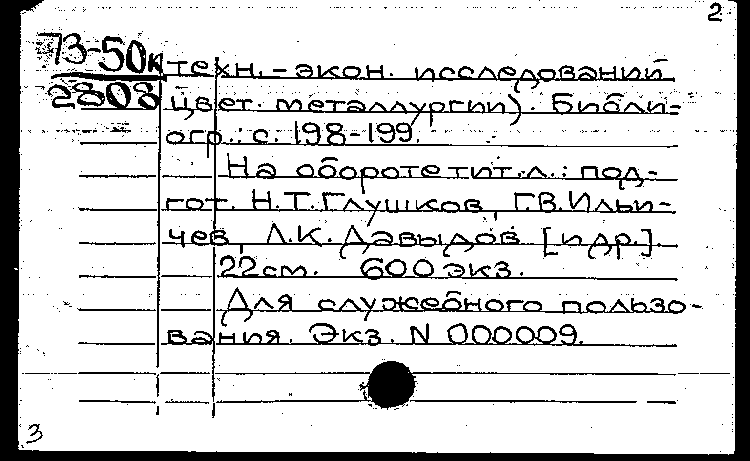 2
73-50к техн.-экон. исследований
2808 цвет. металлургии). Библи-
огр.: с. 198-199.
На обороте тит.л.: под-
гот. Н.Т.Глушков, Г.В.Ильи-
чев, Л.К.Давыдов [и др.].
22см. 600 экз.
Для служебного пользо-
вания. Экз. N 000009.
3